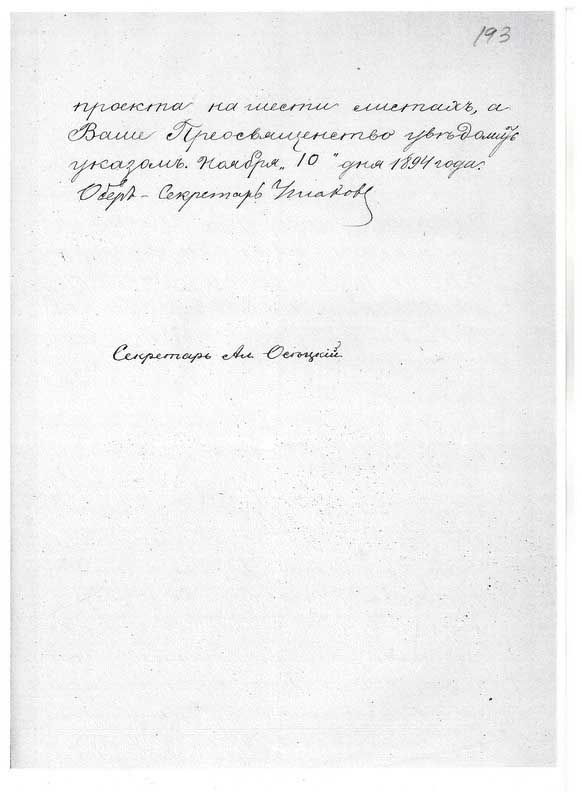 193
проекта на шести листахъ, а
Ваше Преосвященство увѣдомить
указомъ. Ноября „10" дня 1894 года.
Оберъ-Секретарь Ушаков
Секретарь Ал Осѣцкій